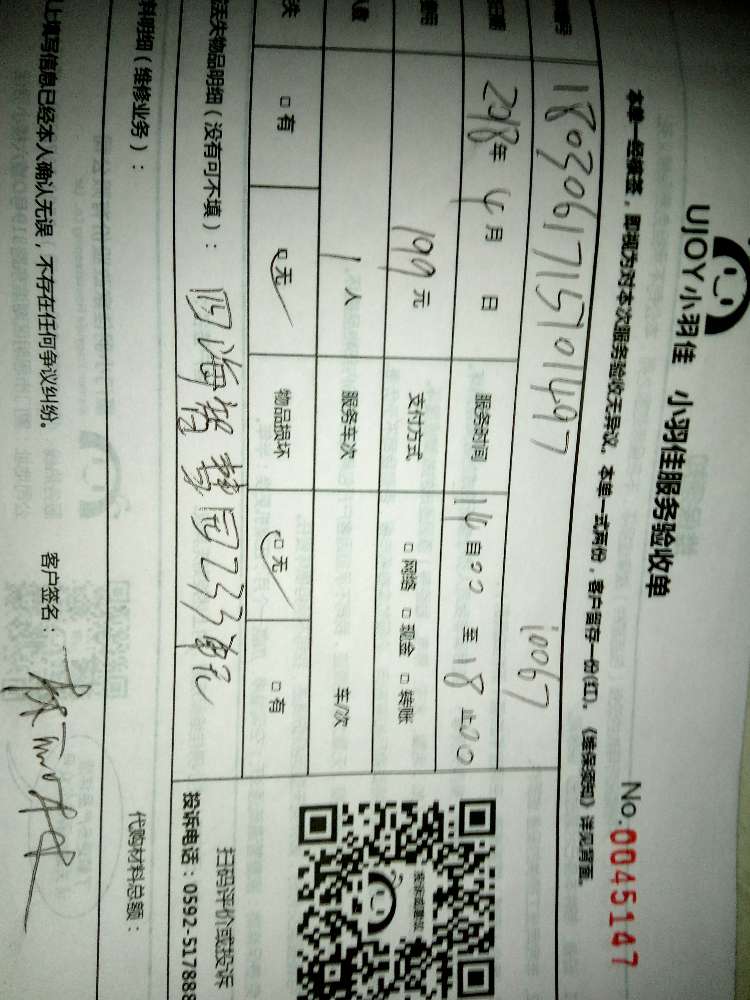 UJOY小羽佳 小羽佳服务验收单
No.0045147
本单一经接签，即视为对本次服务验收无异议。本单一式两份，客户留存一份(红)。《维保须知》详见背面。
1803061715701497 10067
日期 2018年4月 日 服务时间 14自00 至 18止00
199元 支付方式 □网络 □现金 □转账
1人 服务车次 车/次
失 □有 □无 物品损坏 □无 □有
丢失物品明细（没有可不填）：
扫码评价或投诉
投诉电话：0592-517888
料明细（维修业务）：
代购材料总额：
上填写信息已经本人确认无误，不存在任何争议纠纷。 客户签名：